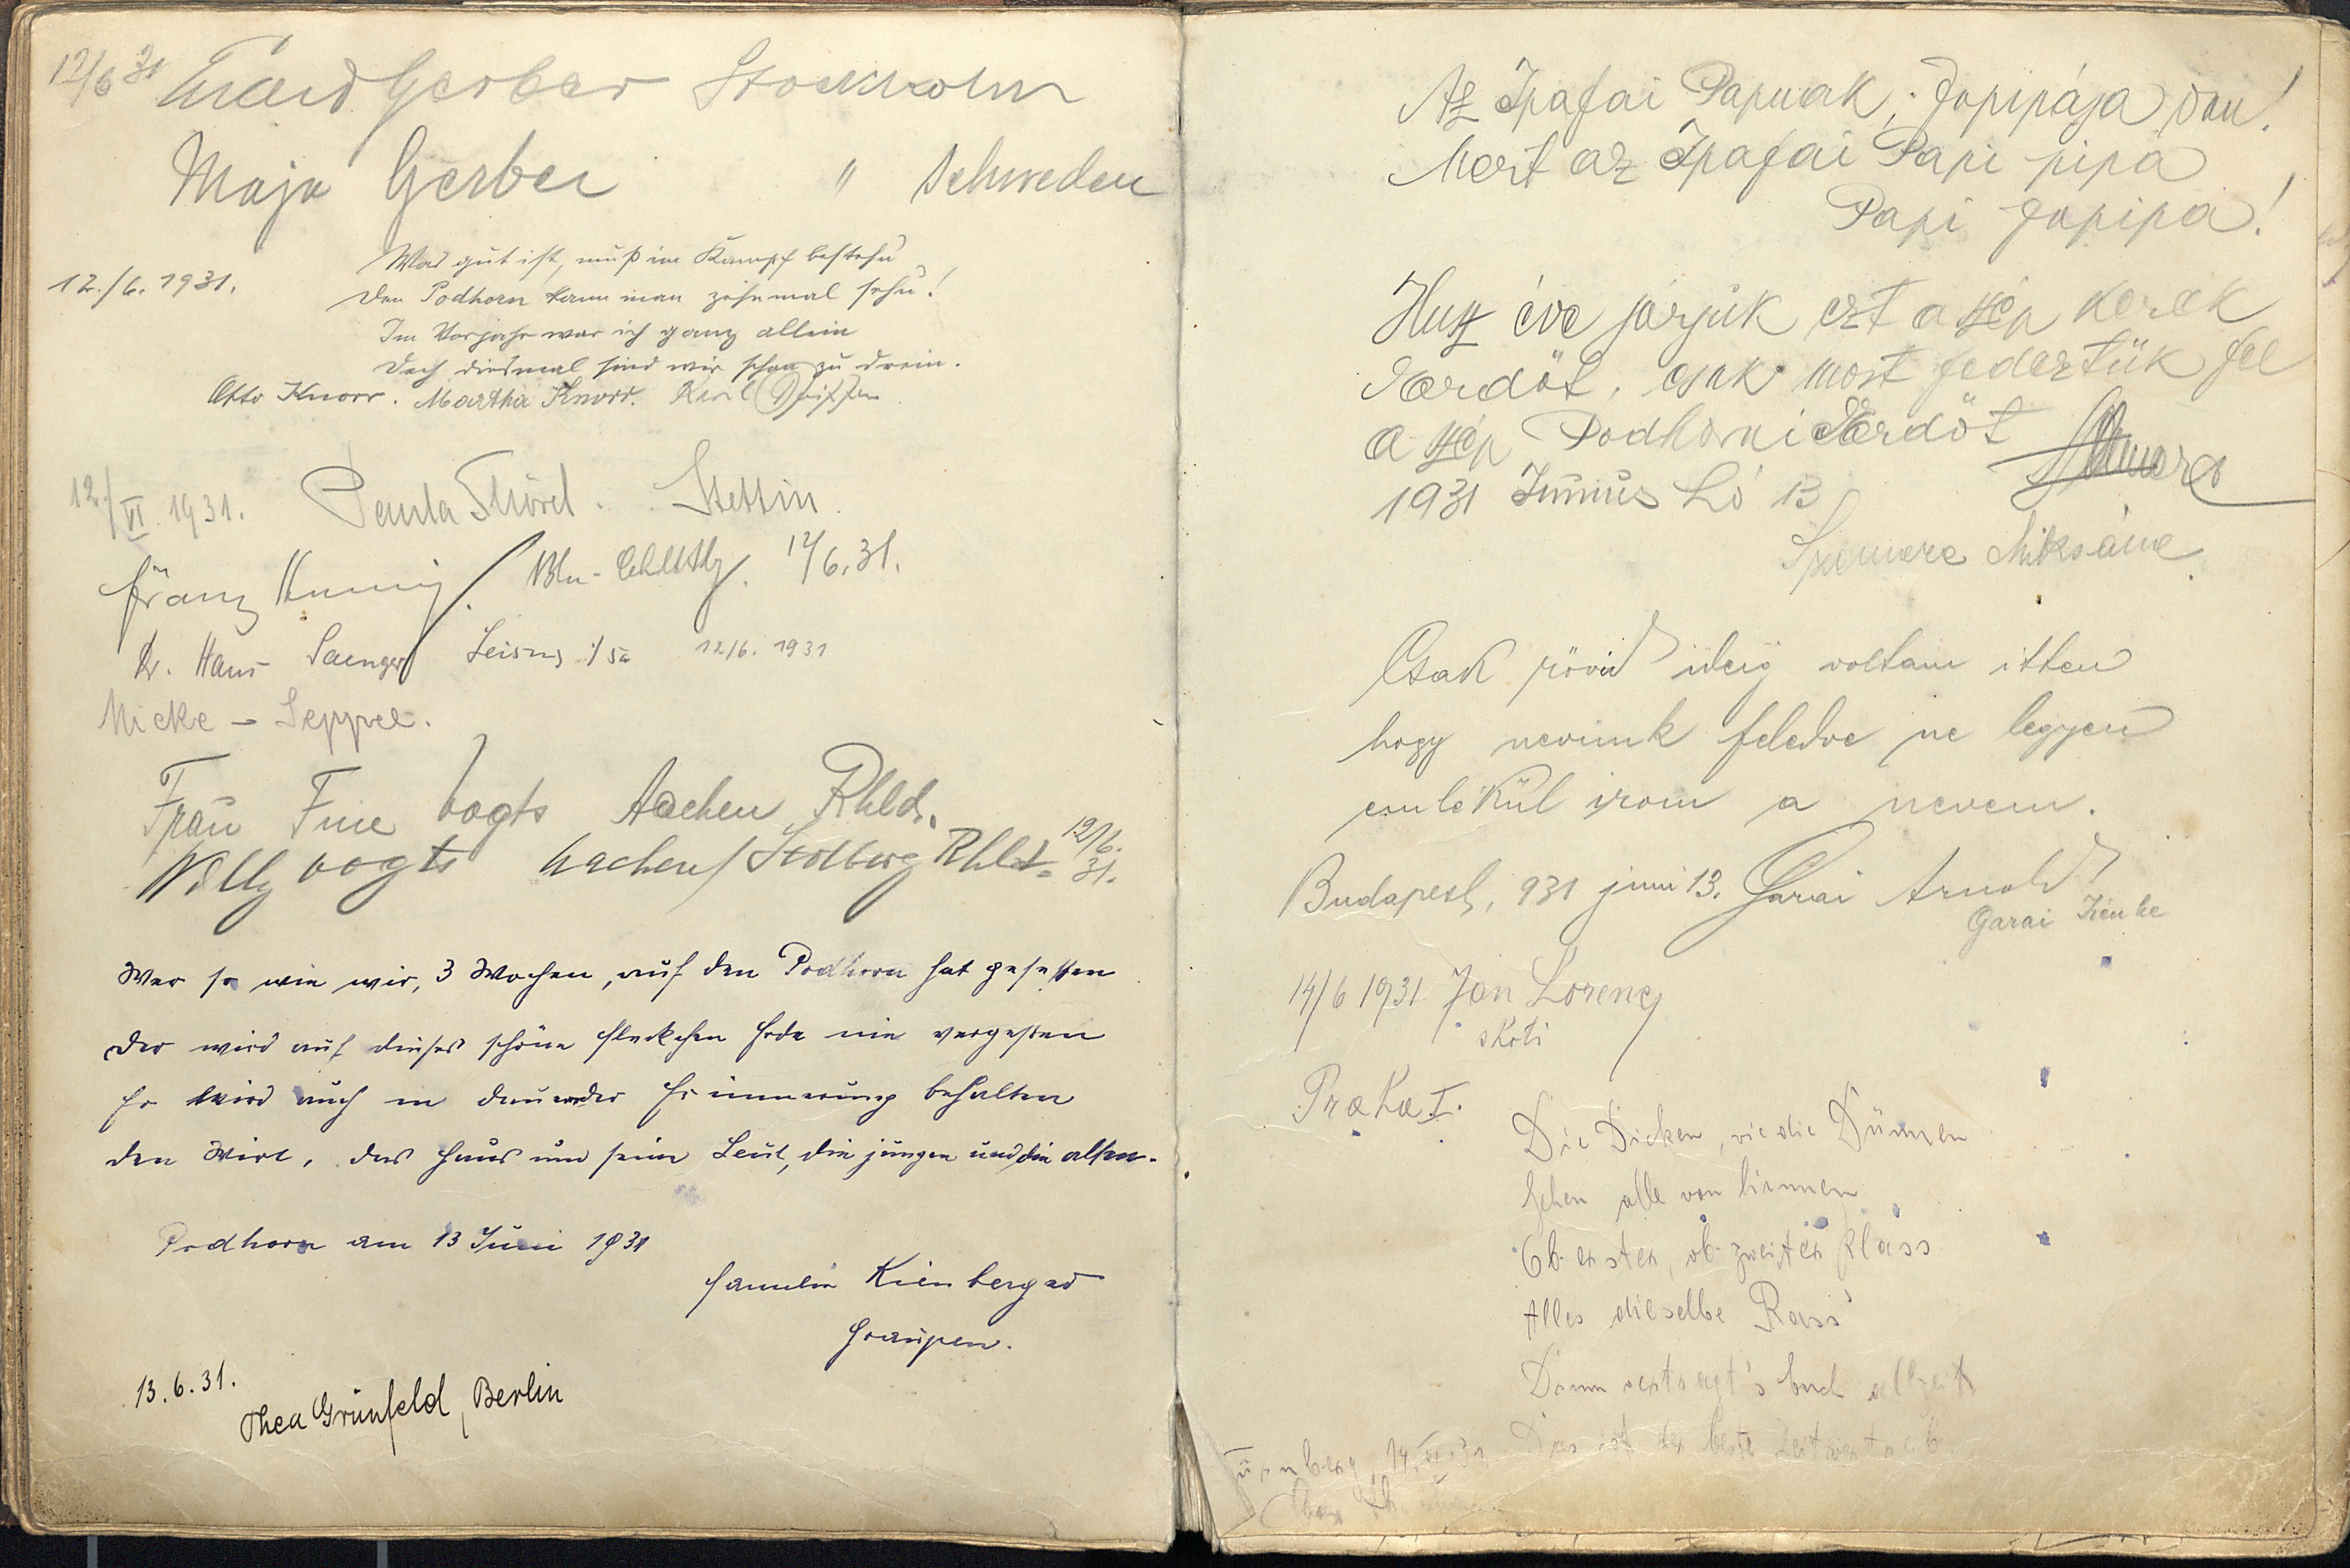 12/6 31 Gerber Stockholm
Maja Gerber " Schweden
12./6. 1931.
Was gut ist, muß im Kampf bestehn
Den Podhorn kann man zehnmal sehn!
Im Vorjahr war ich ganz allein
Doch diesmal sind wir schon zu drein.
Otto Knorr. Martha Knorr. Karl
12./VI. 1931. Paula Stettin.
Franz 12/6.31.
Dr. Hans Saenger 12/6. 1931
Micke - Seppel.
Frau Fine Vogts Aachen Rhld.
Willy Vogts Aachen/Stolberg Rhld. 12/6. 31.
Wer so wie wir, 3 Wochen, auf den Podhorn hat gesessen
der wird auf dieses schöne Fleckchen Erde nie vergessen
Er wird auch in dauernder Erinnerung behalten
den Wirt, das Haus und seine Leut, die jungen und die alten.
Podhorn am 13 Juni 1931
Familie Kienberger
Graupen.
13.6.31.
Thea Grünfeld, Berlin
Az Ipafai Papnak, fapipája van!
Mert az Ipafai Papi pipa
Papi fapipa!
Husz éve járjuk ezt a szép kerek
erdőt, csak most fedeztük fel
a szép Podhorni erdőt
1931 Június hó 13
Szemere Miksáné
Csak rövid ideig voltam itten
hogy nevünk feledve ne legyen
emlékül irom a nevem.
Budapest, 931 juni 13. Garai Arnold
Garai
14/6 1931 Jan Lorenz
Praha I.
Die Dicken, wie die Dünnen
Gehen alle von hinnen
Ob erster, ob zweiter Klass
Alles dieselbe Rass'
Drum vertragt's Euch allzeit
Das ist der beste Zeitvertreib
Nürnberg, 14.VI.31.